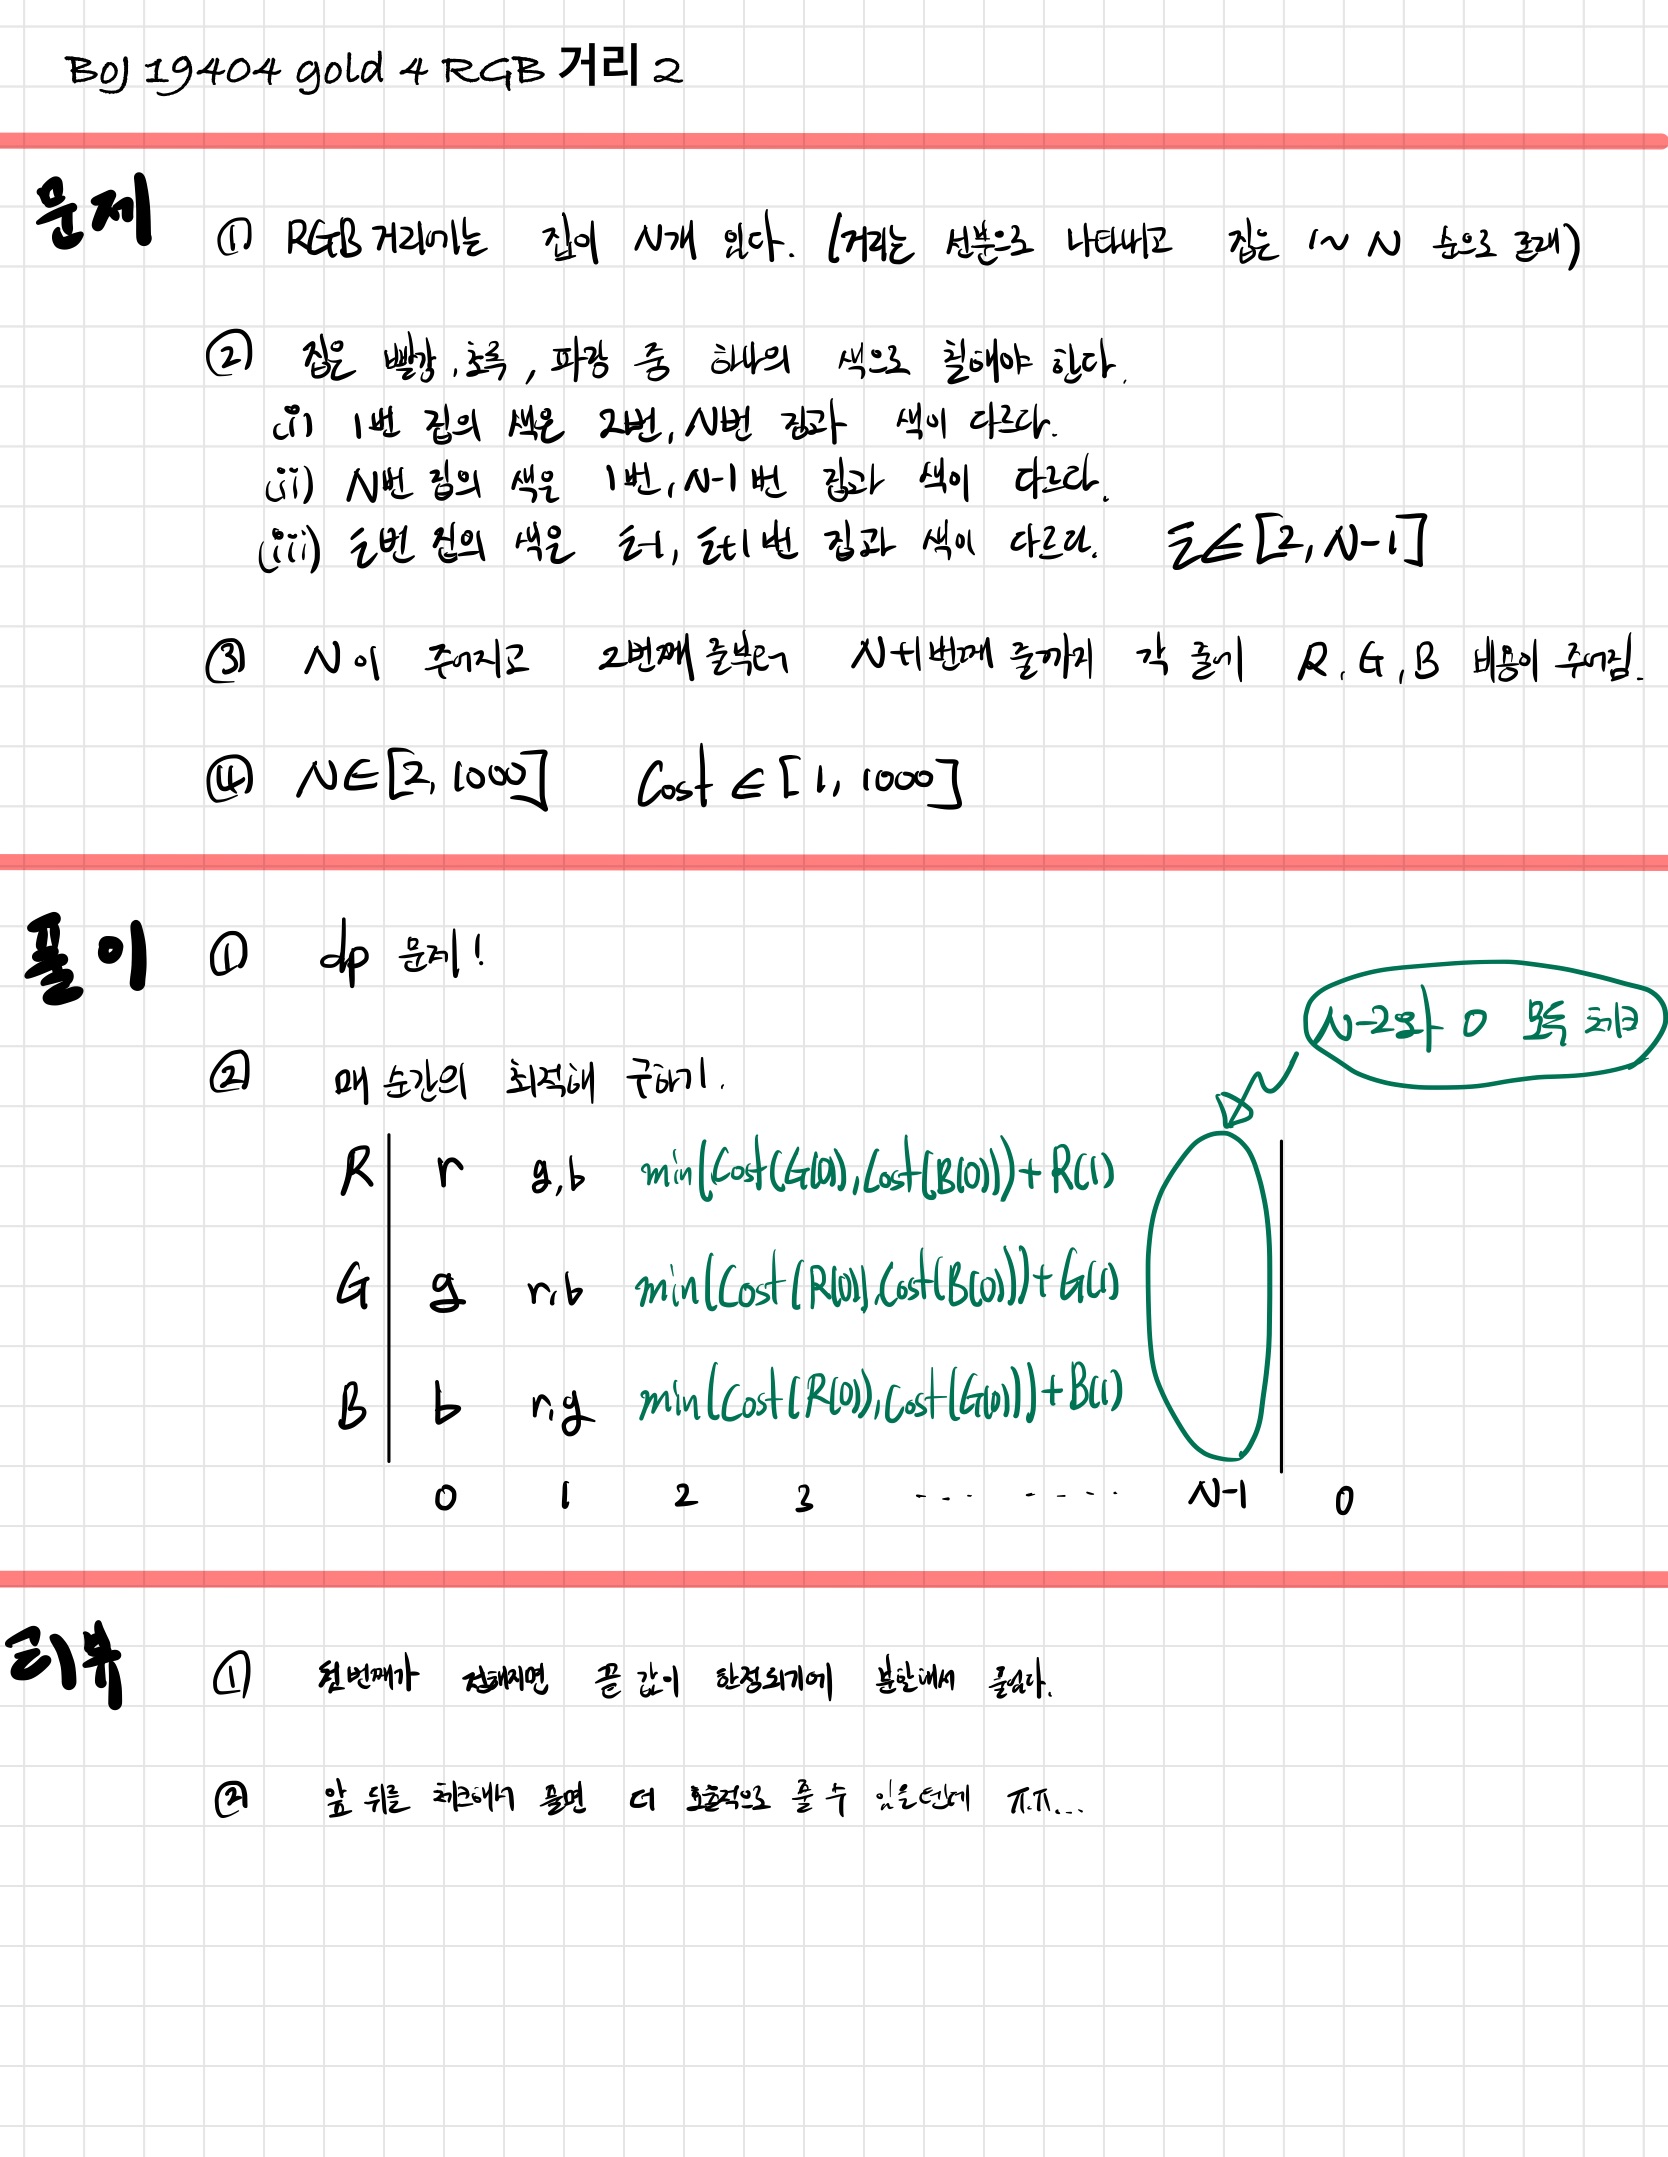 BOJ 19404 gold 4 RGB 거리 2
문제
① RGB거리에는 집이 N개 있다. (거리는 선분으로 나타내고 집은 1~N 순으로 존재)
② 집은 빨강, 초록, 파랑 중 하나의 색으로 칠해야 한다.
(i) 1번 집의 색은 2번, N번 집과 색이 다르다.
(ii) N번 집의 색은 1번, N-1번 집과 색이 다르다.
(iii) i번 집의 색은 i-1, i+1번 집과 색이 다르다. i∈[2, N-1]
③ N이 주어지고 2번째 줄부터 N+1번째 줄까지 각 줄에 R, G, B 비용이 주어짐.
④ N∈[2, 1000] Cost∈[1, 1000]
풀이
① dp 문제!
N-2와 0 모두 체크
② 매 순간의 최적해 구하기.
R r g,b min(Cost(G(0)), Cost(B(0)))+R(1)
G g r,b min(Cost(R(0)), Cost(B(0)))+G(1)
B b r,g min(Cost(R(0)), Cost(G(0)))+B(1)
0 1 2 3 ---- ---- N-1 0
리뷰
① 첫번째가 정해지면 끝 값이 한정되기에 분할해서 풀었다.
② 앞 뒤를 체크해서 풀면 더 효율적으로 풀 수 있을텐데 ㅠ.ㅠ...